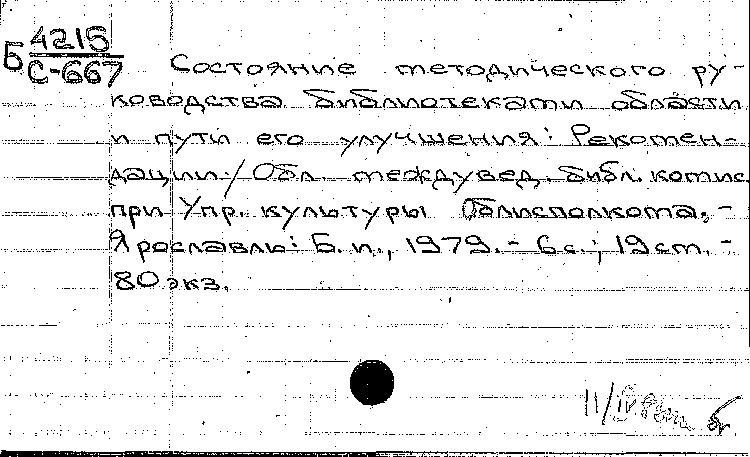 Б 4215
С-667
Состояние методического ру-
ководства библиотеками области
и пути его улучшения: Рекомен-
дации / Обл. междувед. библ. комис.
при Упр. культуры Облисполкома. -
Ярославль: Б. и., 1979. - 6 с.; 19 см. -
80 экз.
11/IV